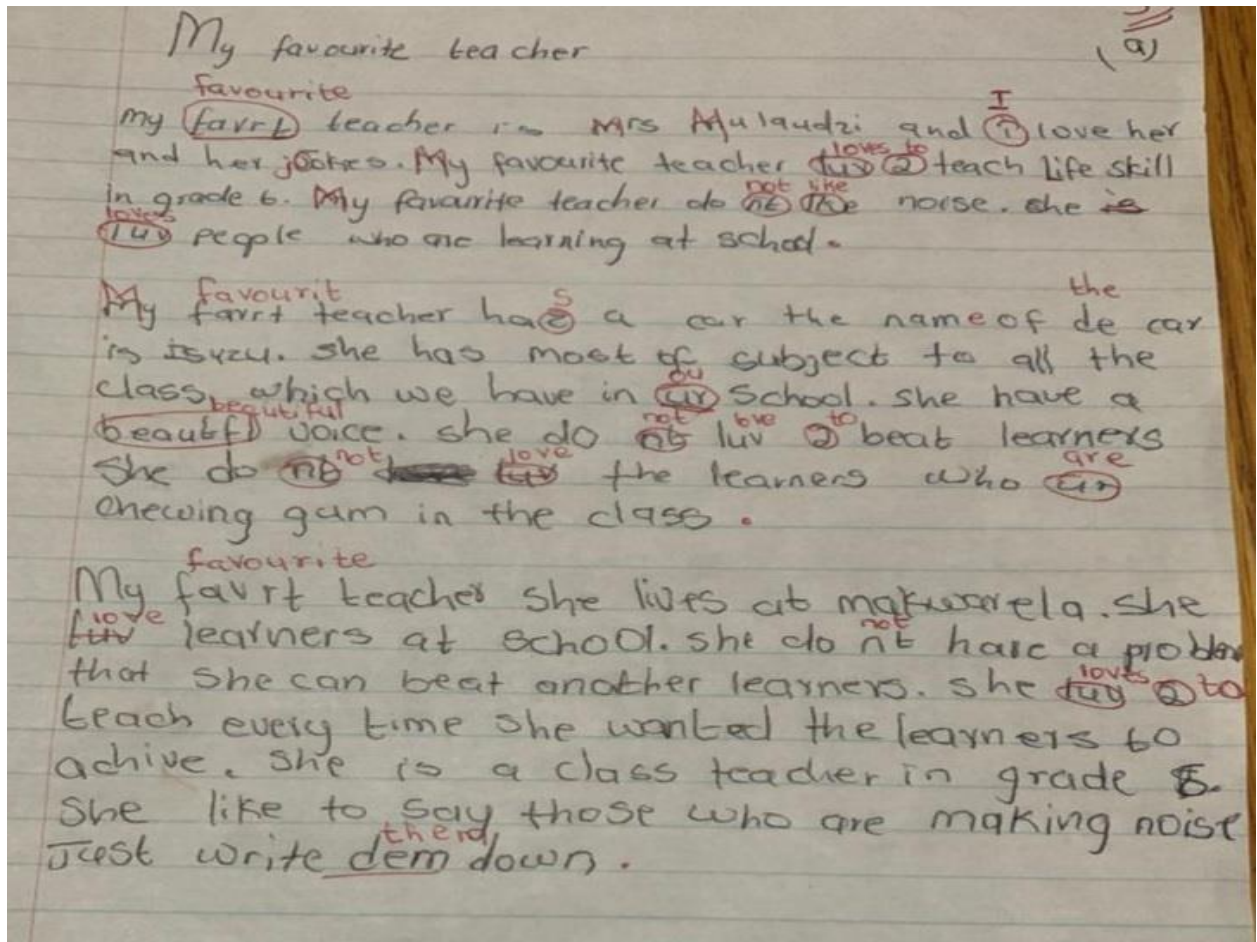 My favourite teacher
(a)
favourite
my favrt teacher is Mrs Mulaudzi and i love her
I
and her jookes. My favourite teacher luv 2 teach life skill
loves to
in grade 6. My favourite teacher do nt like noise. she is
not like
loves
luv people who are learning at school.
favourit
s
the
My favrt teacher has a car the name of de car
is Isyzu. she has most of subject to all the
class, which we have in ur school. she have a
ou
beautiful
beautfl voice. she do nt luv 2 beat learners
not
ove
to
she do nt luv the learners who ur
not
love
are
chewing gum in the class.
favourite
My favrt teacher she lives at makwarela. she
love
luv learners at school. she do nt have a problem
not
that she can beat another learners. she luv 2 to
loves
teach every time she wanted the learners to
achive. she is a class teacher in grade
she like to say those who are making noise
Just write dem down.